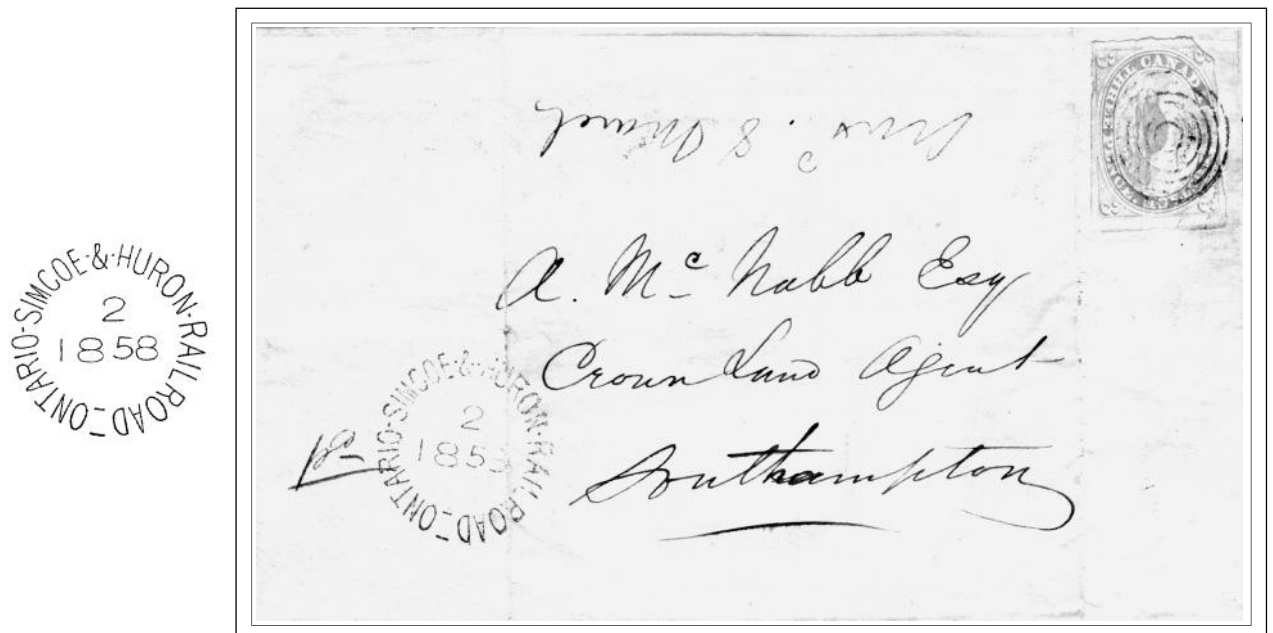 ONTARIO-SIMCOE-&-HURON-RAIL.ROAD
2
1858
8
A. Mc Nabb Esq
Crown Land Agent
Southampton
ONTARIO-SIMCOE-&-HURON-RAIL.ROAD
2
185
CANADA